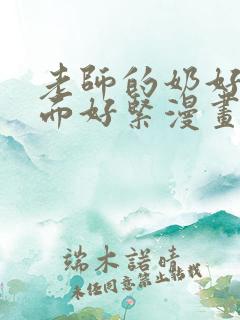 老師的奶好
而好緊漫畫
端木諾晴
未经同意禁止转载